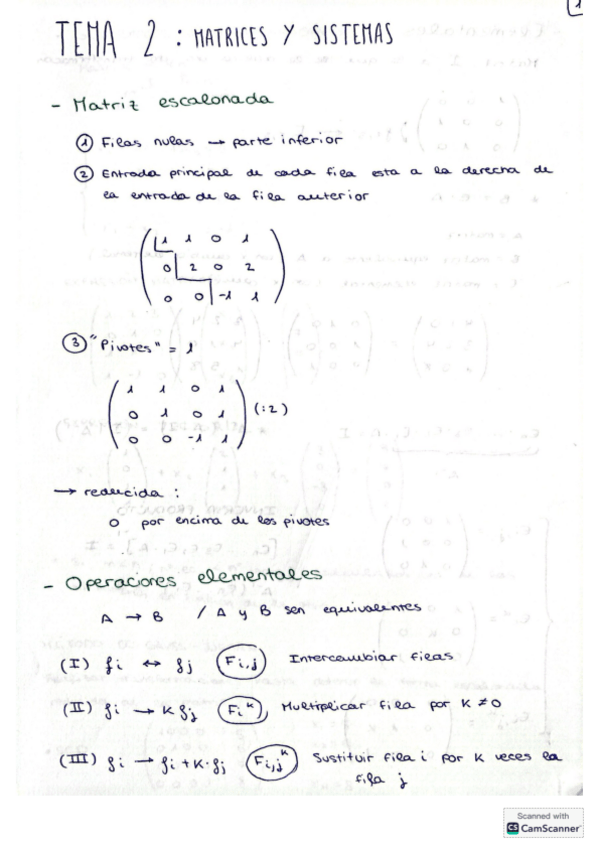 1
TEMA 2 : MATRICES Y SISTEMAS
- Matriz escalonada
① Filas nulas → parte inferior
② Entrada principal de cada fila esta a la derecha de
la entrada de la fila anterior
1 1 0 1
0 2 0 2
0 0 -1 1
③ "Pivotes" = 1
1 1 0 1
0 1 0 1 (:2)
0 0 -1 1
→ reducida :
0 por encima de los pivotes
- Operaciones elementales
A → B / A y B sen equivalentes
(I) fi ↔ fj Fi,j Intercambiar filas
(II) fi → K fj Fi^K Multiplicar fila por K ≠ 0
(III) fi → fi + K·fj Fi,j^K Sustituir fila i por K veces la
fila j
Scanned with
CS CamScanner